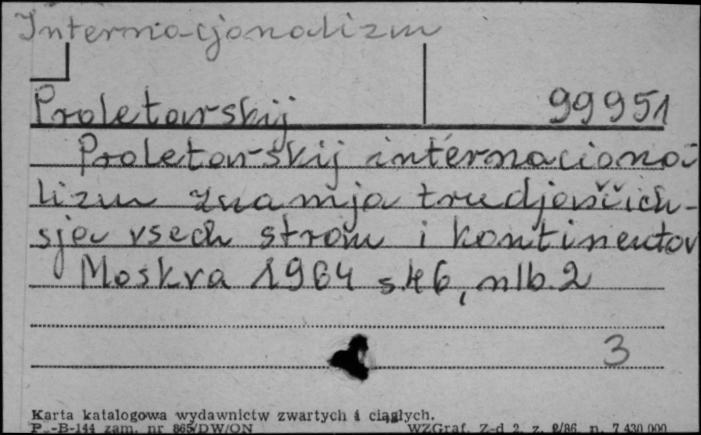 Internacjonalizm
Proletarskij 99951
Proletarskij internaciona-
lizm znamja trudjaščich-
sja vsech stran i kontinentov
Moskva 1964 s.46, nlb.2
3
Karta katalogowa wydawnictw zwartych i ciągłych.
P -B-144 zam. nr 865/DW/ON WZGraf. Z-d 2. z. 2/86. n. 7 430 000